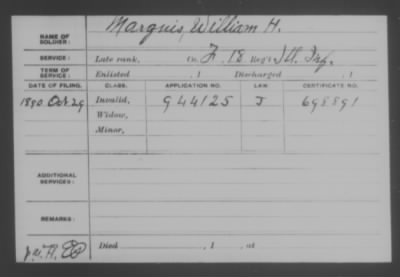 NAME OF SOLDIER: Marquis, William H.
SERVICE: Late rank, Co. F. 18 Reg't Ill. Inf.
TERM OF SERVICE: Enlisted , 1 Discharged , 1
DATE OF FILING. CLASS. APPLICATION NO. LAW. CERTIFICATE NO.
1890 Oct. 29 Invalid, 944125 J 698891
Widow,
Minor,
ADDITIONAL SERVICES:
REMARKS:
Died , 1 , at